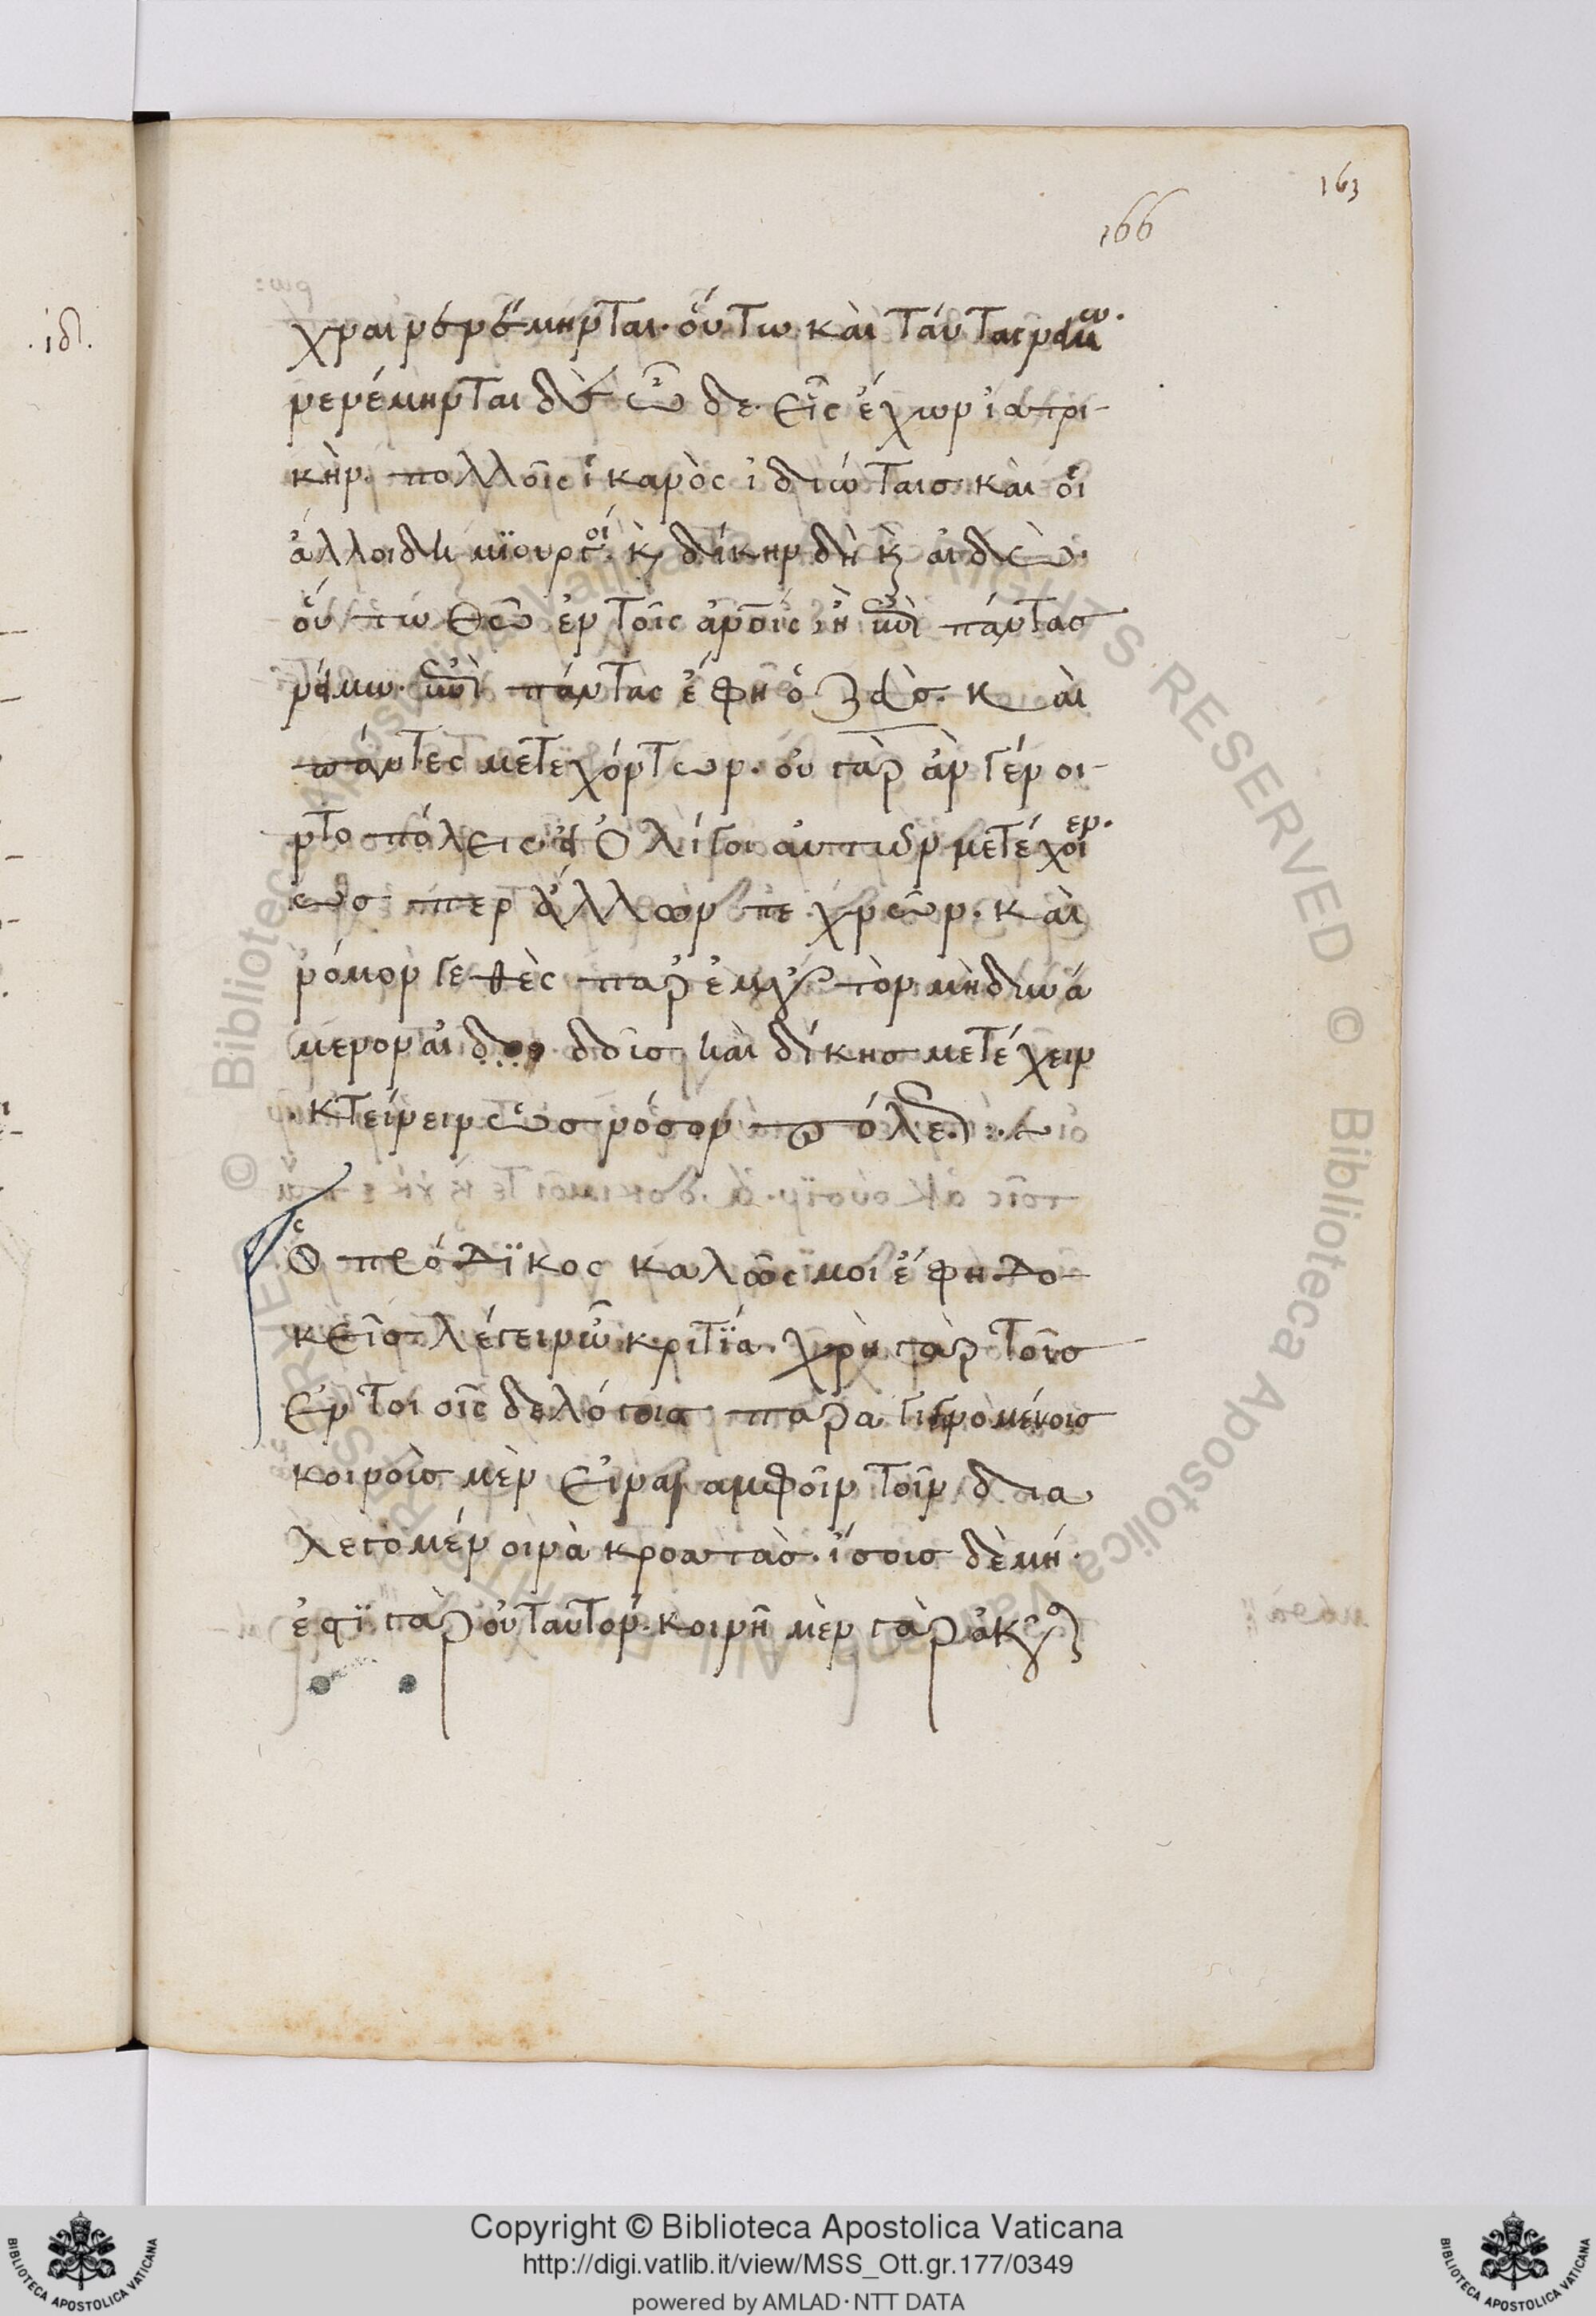 163
166
.ιδ.
χναι νενέμηνται· οὕτω καὶ ταύτας νείμω·
νενέμηνται δὲ ὧδε· εἷς ἔχων ἰατρι-
κὴν· πολλοῖς ἱκανὸς ἰδιώταις· καὶ οἱ
ἄλλοι δημιουργοί· κ̀ δίκην δὴ κ̀ αἰδῶ·
οὕτω θῶ ἐν τοῖς ἀνοις ἢ ἐπὶ πάντας
νείμω· ἐπὶ πάντας ἔφη ὁ ζεὺς· καὶ
πάντες μετεχόντων· οὐ γὰρ ἂν γένοι-
ντο πόλεις εἰ ὀλίγοι αὐτῶν μετέχοιεν·
ὥσπερ ἄλλων τεχνῶν· καὶ
νόμον γε θὲς παρ ἐμοῦ τὸν μὴ δυνά
μενον αἰδοῦς καὶ δίκης μετέχειν
κτείνειν ὡς νόσον πόλεως
Ὁ πρόδϊκος καλῶς μοι ἔφη δο-
κεῖς λέγειν ὦ κριτΐα· χρὴ γὰρ τοῖς
ἐν τοιοῖς δε λόγοις παραγιγνομένοις
κοινοὶς μὲν εἶναι αμφοῖν τοῖν δια
λεγομένοιν ἀκροατὰς· ἴσοις δὲ μή·
ἐστϊ γὰρ οὐ ταῦτον· κοινῆ μὲν γὰρ ἀκοῦσαι
Copyright © Biblioteca Apostolica Vaticana
http://digi.vatlib.it/view/MSS_Ott.gr.177/0349
powered by AMLAD·NTT DATA
BIBLIOTECA APOSTOLICA VATICANA
BIBLIOTECA APOSTOLICA VATICANA